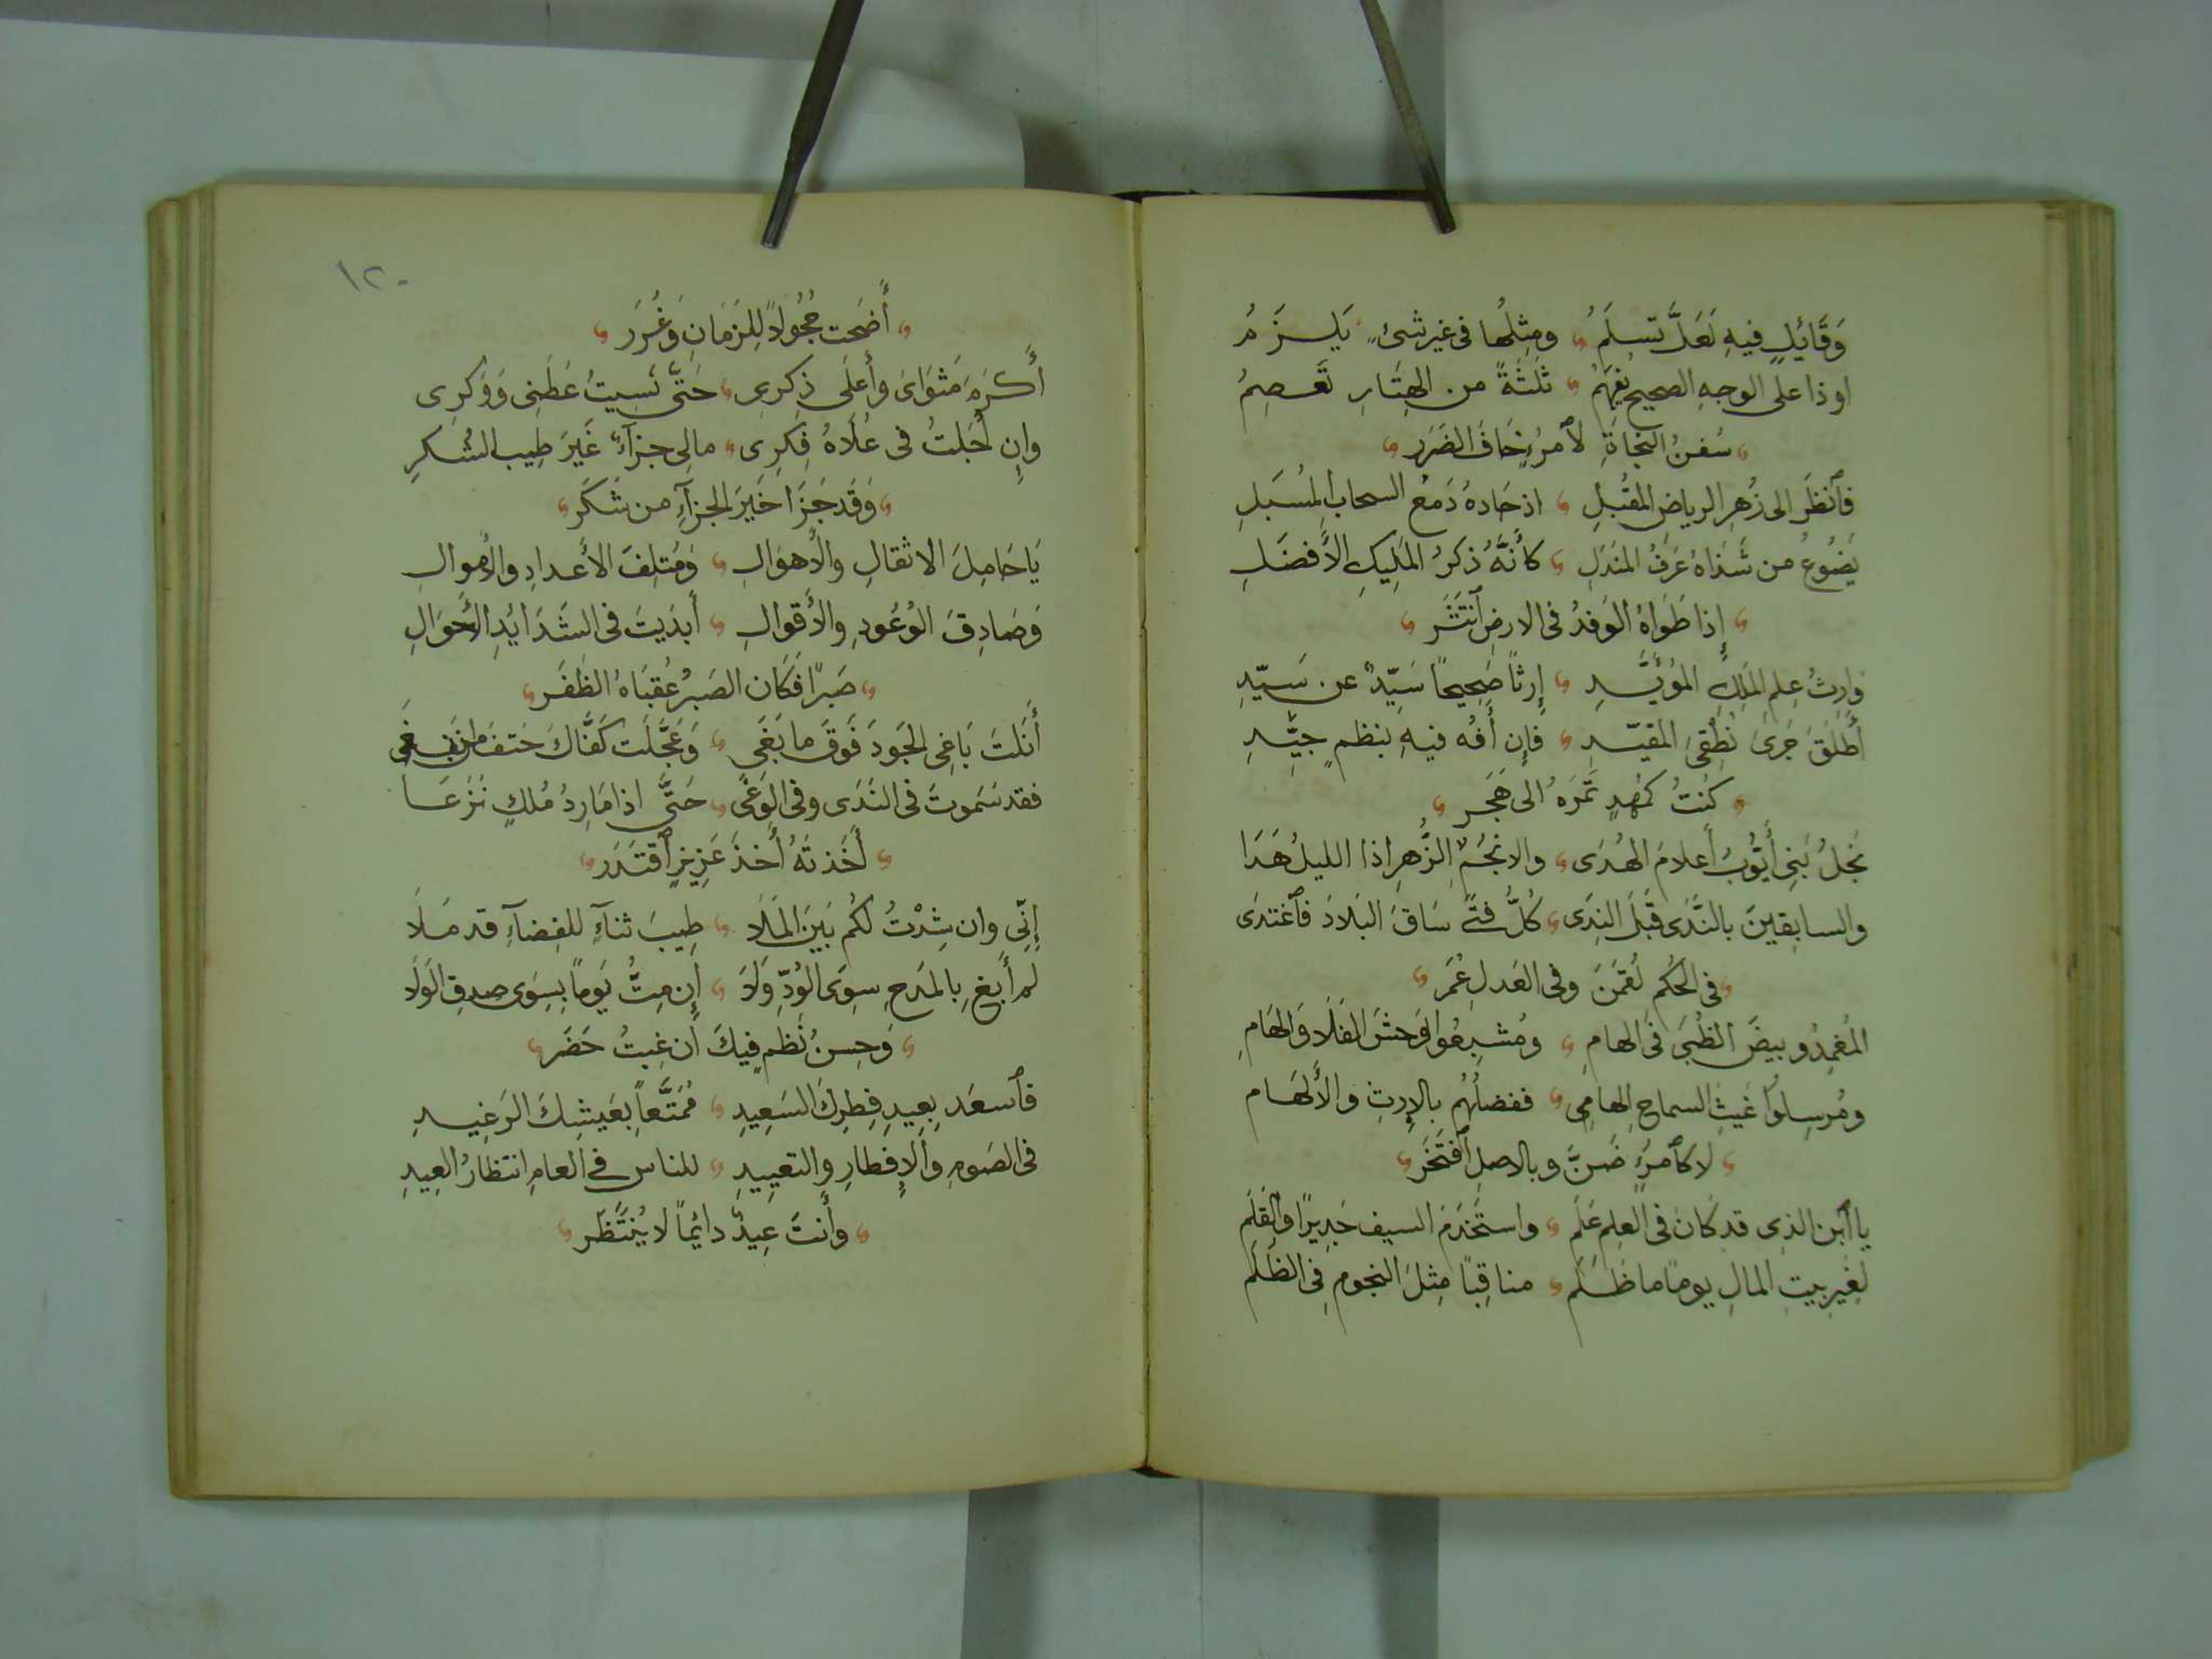 وَقَائِلٍ فيهِ لَعَلَّ تسلَمُ ومثلُها فى غير شئٍ يَلزَمُ
او ذا على الوجهِ الصحيح يُفهَمُ ثلثَةً من الهِتَارِ تَعصِمُ
سُفنُ النجاةِ لاٱمرُءٍ خَافَ الضَرَر
فٱنظُر الى زُهرِ الرياضِ المُقبُلِ اذ حَادهُ دَمعُ السحابِ المُسبَلِ
يَضُوعُ من شَذاهُ عَرفُ المَندَلِ كأنَّهُ ذكرُ المَلِيكِ الأَفضَلِ
إِذا طَوَاهُ الوَفدُ فى الارضِ ٱنتَشَر
وَارِثُ عِلمِ المَلِكِ المُؤيَّدِ إِرثًا صَحِيحاً سَيّدٌ عن سَيّدِ
أَطلَقَ جَرىَ نُطقِىَ المقيّدِ فإِن أفُه فيهِ بنظمٍ جيّدِ
كنتُ كمُهدٍ تَمرَهُ الى هَجَر
نَجلُ بَنِى أَيّوبُ أَعلامَ الهُدَى والانجُمِ الزُّهرِ اذا الليلُ هَدَا
والسابِقينَ بالنَّدَى قَبلَ النِدَى كُلُّ فتًى سَاقَ البلادَ فٱغتدَى
فى الحُكم لُقمَنَ وفى العَدلِ عُمَر
المُغمِدُو بيضَ الظُبَى فى الهامِ ومُشبِعُوا وَحشَ الفَلَا وَالهَامِ
ومُرسِلُوا غَيثِ السماحِ الهامِى ففضلُهُم بالإِرثِ والأَلهَام
لا كٱمرُءٍ ضَنَّ وبالاصلِ ٱفتَخَر
يا ٱبن الذى قد كانَ فى العِلمِ عَلَم واستَخدَمَ السيف جَدِيرًا والقَلَم
لغيرِ بيتِ المالِ يومًا ما ظَلَم مناقِبًا مِثلَ النجومِ فِى الظُلَم
١٢٠
أَضحَت حُجُولاً لِلزَمَانِ وَغُرَر
أَكرَمَ مَثوَاىَ وأَعلَى ذِكرِى حَتَّى نَسِيتُ عَطَنِى وَوَكرِى
وإِن أَجَلتُ فى عُلَاهُ فِكرِى مالِى جزآءٌ غَيرَ طِيبِ الشُكرِ
وَقَد جَزَا خَيرَ الجزآءِ من شَكَر
يَا حَامِلَ الاثقالِ والأَهوَالِ وَمُتلِفَ الأَعدادِ والأَموالِ
وَصَادِقَ الوُعُودِ والأَقوالِ أَبدَيتَ فى الشَدَايُدِ الأَحوَالِ
صَبرًا فَكَان الصَبرُ عُقبَاهُ الظَفَر
أَنَلتَ بَاغِى الجَودَ فَوقَ ما بَغَى وَعَجَّلَت كفَّاكَ حَتفَ من بغَى
فقد سَمَوتَ فى النَدَى وفى الوَغَى حَتَّى اذا مَارِدُ مُلكٍ نَزَعَا
أَخَذتَهُ أَخذَ عَزِيزٍ ٱقتَدَر
إِنِّى وان شِدْتُ لكُم بَينَ المَلَا طِيبَ ثنآءٍ للفِضآءِ قد مَلَا
لم أَبغِ بِالمَدحِ سِوَى الوُدِّ وَلَا إِن مِتُّ يَوماً بسِوَى صِدقِ الوَلَا
وَحِسنُ نَظمٍ فِيكَ ان غِبتُ حَضَر
فٱسعَد بِعِيدِ فِطرِكَ السَعِيدِ مُمَتَّعاً بعَيشِكَ الرَغِيدِ
فى الصَومِ والإِفطارِ والتعييدِ للناسِ فى العامِ انتظارُ العِيدِ
وأَنتَ عِيدٌ دائماً لا يُنتَظَر